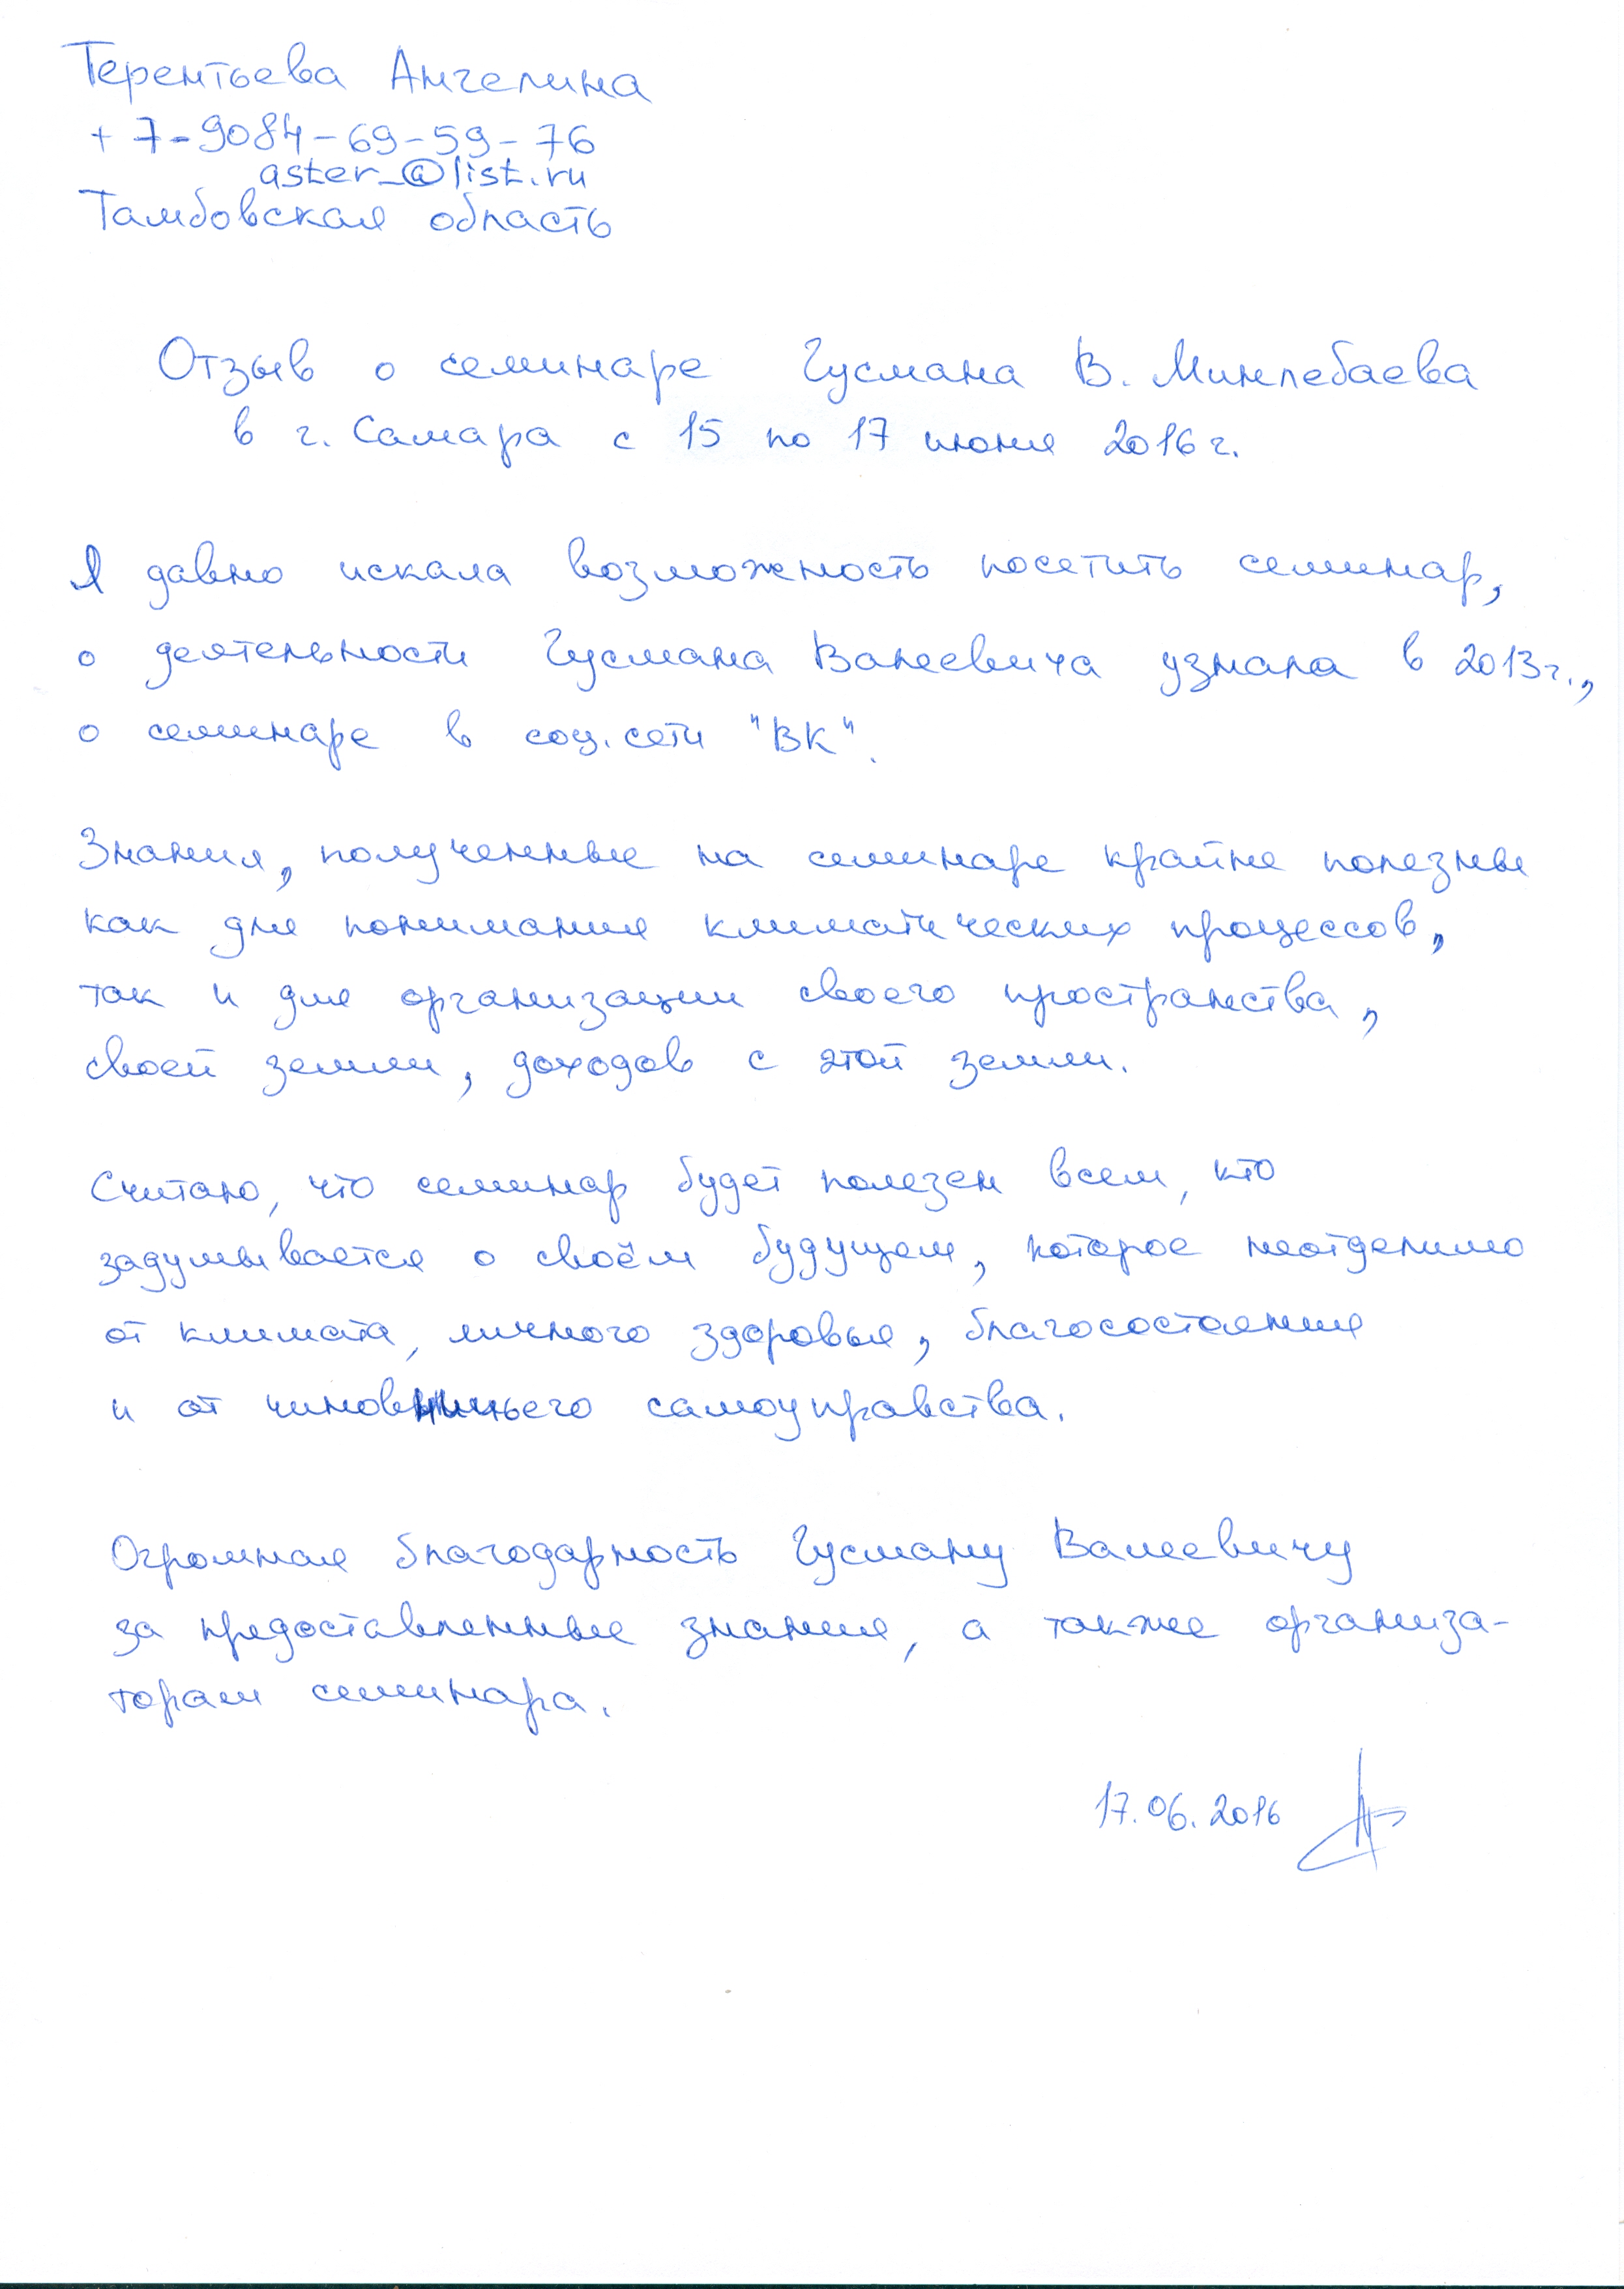 Терентьева Ангелина
+7-9084-69-59-76
aster_@list.ru
Тамбовская область
Отзыв о семинаре Гусмана В. Минлебаева
в г. Самара с 15 по 17 июня 2016 г.
Я давно искала возможность посетить семинар,
о деятельности Гусмана Валеевича узнала в 2013г.,
о семинаре в соц. сети "ВК".
Знания, полученные на семинаре крайне полезны
как для понимания климатических процессов,
так и для организации своего пространства,
своей земли, доходов с этой земли.
Считаю, что семинар будет полезен всем, кто
задумывается о своём будущем, которое неотделимо
от климата, личного здоровья, благосостояния
и от чиновничьего самоуправства.
Огромная благодарность Гусману Валеевичу
за предоставленные знания, а также организа-
торам семинара.
17.06.2016